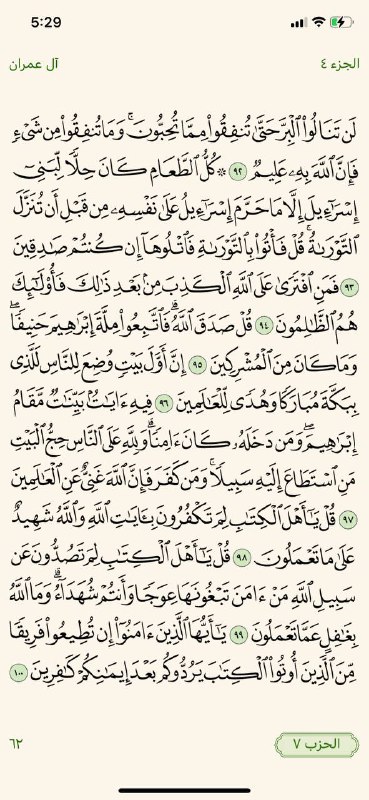 5:29
الجزء ٤
آل عمران
لَن تَنَالُوا۟ ٱلْبِرَّ حَتَّىٰ تُنفِقُوا۟ مِمَّا تُحِبُّونَ ۚ وَمَا تُنفِقُوا۟ مِن شَىْءٍ
فَإِنَّ ٱللَّهَ بِهِۦ عَلِيمٌ ٩٢ ۞ كُلُّ ٱلطَّعَامِ كَانَ حِلًّا لِّبَنِىٓ
إِسْرَٰٓءِيلَ إِلَّا مَا حَرَّمَ إِسْرَٰٓءِيلُ عَلَىٰ نَفْسِهِۦ مِن قَبْلِ أَن تُنَزَّلَ
ٱلتَّوْرَىٰةُ ۗ قُلْ فَأْتُوا۟ بِٱلتَّوْرَىٰةِ فَٱتْلُوهَآ إِن كُنتُمْ صَٰدِقِينَ
٩٣ فَمَنِ ٱفْتَرَىٰ عَلَى ٱللَّهِ ٱلْكَذِبَ مِنۢ بَعْدِ ذَٰلِكَ فَأُو۟لَٰٓئِكَ
هُمُ ٱلظَّٰلِمُونَ ٩٤ قُلْ صَدَقَ ٱللَّهُ ۗ فَٱتَّبِعُوا۟ مِلَّةَ إِبْرَٰهِيمَ حَنِيفًا ۖ
وَمَا كَانَ مِنَ ٱلْمُشْرِكِينَ ٩٥ إِنَّ أَوَّلَ بَيْتٍ وُضِعَ لِلنَّاسِ لَلَّذِى
بِبَكَّةَ مُبَارَكًا وَهُدًى لِّلْعَٰلَمِينَ ٩٦ فِيهِ ءَايَٰتٌۢ بَيِّنَٰتٌ مَّقَامُ
إِبْرَٰهِيمَ ۖ وَمَن دَخَلَهُۥ كَانَ ءَامِنًا ۗ وَلِلَّهِ عَلَى ٱلنَّاسِ حِجُّ ٱلْبَيْتِ
مَنِ ٱسْتَطَاعَ إِلَيْهِ سَبِيلًا ۚ وَمَن كَفَرَ فَإِنَّ ٱللَّهَ غَنِىٌّ عَنِ ٱلْعَٰلَمِينَ
٩٧ قُلْ يَٰٓأَهْلَ ٱلْكِتَٰبِ لِمَ تَكْفُرُونَ بِـَٔايَٰتِ ٱللَّهِ وَٱللَّهُ شَهِيدٌ
عَلَىٰ مَا تَعْمَلُونَ ٩٨ قُلْ يَٰٓأَهْلَ ٱلْكِتَٰبِ لِمَ تَصُدُّونَ عَن
سَبِيلِ ٱللَّهِ مَنْ ءَامَنَ تَبْغُونَهَا عِوَجًا وَأَنتُمْ شُهَدَآءُ ۗ وَمَا ٱللَّهُ
بِغَٰفِلٍ عَمَّا تَعْمَلُونَ ٩٩ يَٰٓأَيُّهَا ٱلَّذِينَ ءَامَنُوٓا۟ إِن تُطِيعُوا۟ فَرِيقًا
مِّنَ ٱلَّذِينَ أُوتُوا۟ ٱلْكِتَٰبَ يَرُدُّوكُم بَعْدَ إِيمَٰنِكُمْ كَٰفِرِينَ ١٠٠
الحزب ٧
٦٢